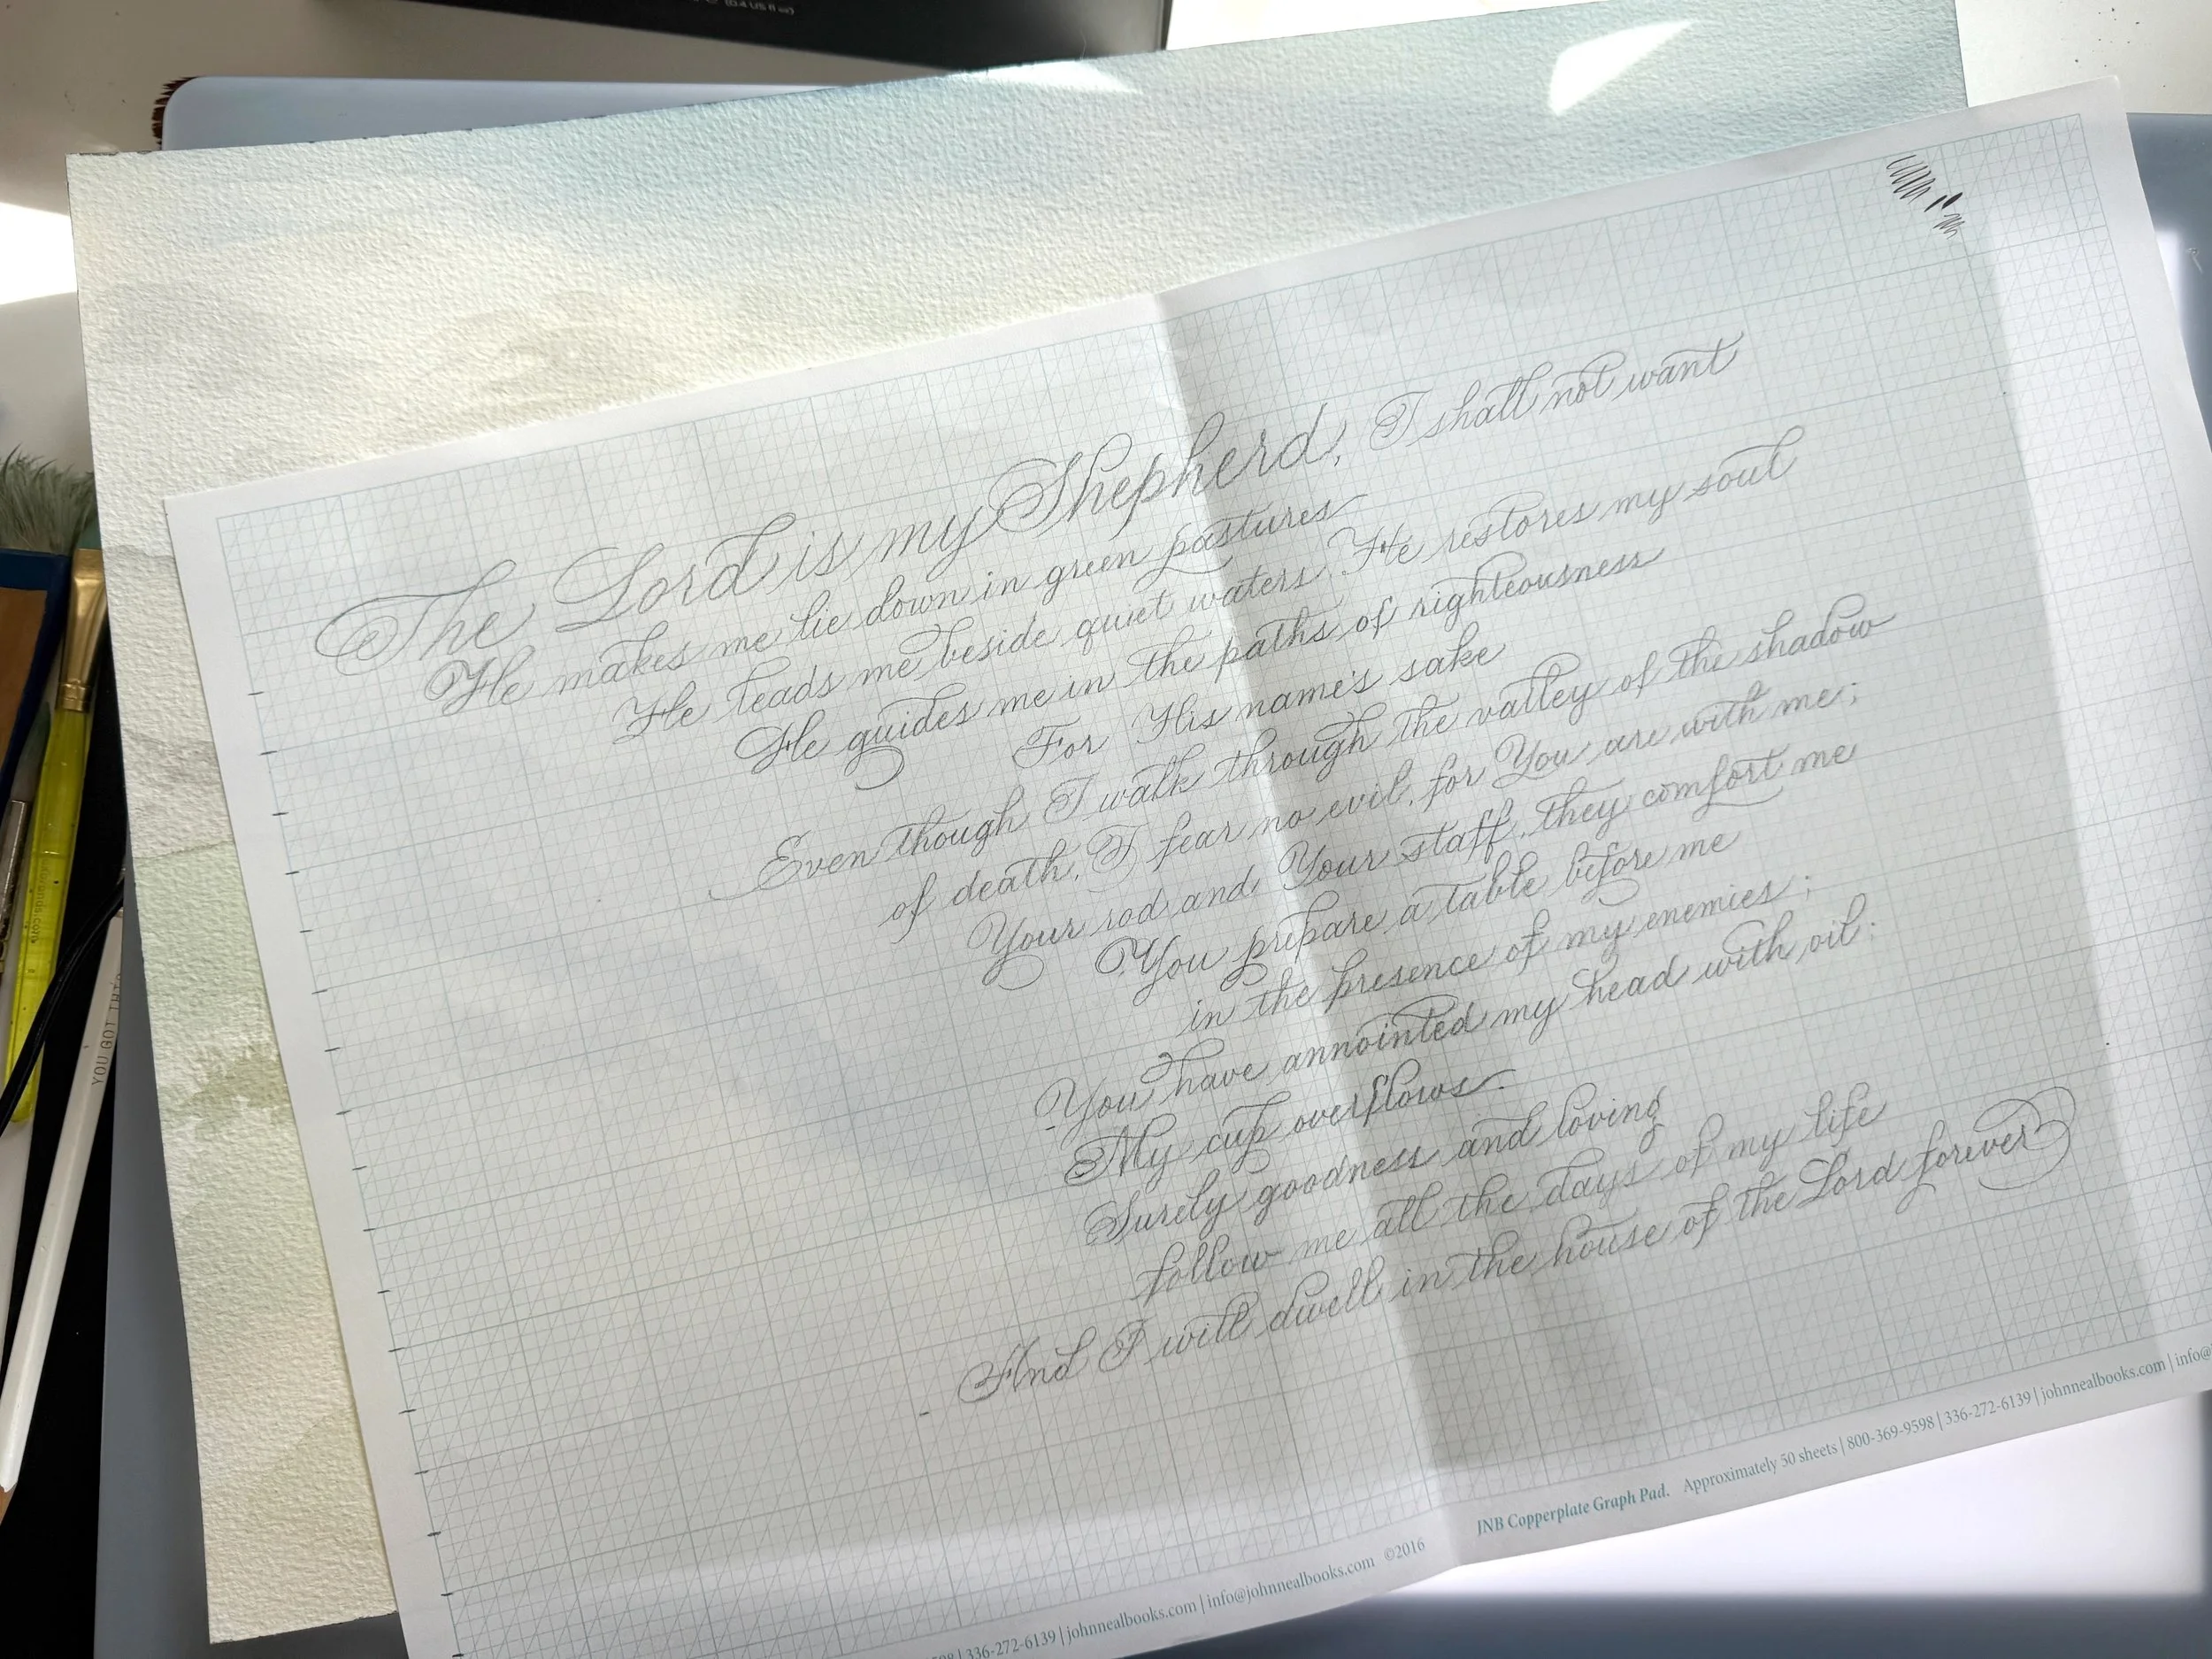 The Lord is my Shepherd, I shall not want
He makes me lie down in green pastures
He leads me beside quiet waters, He restores my soul
He guides me in the paths of righteousness
For His name's sake
Even though I walk through the valley of the shadow
of death, I fear no evil, for You are with me;
Your rod and Your staff, they comfort me
You prepare a table before me
in the presence of my enemies;
You have annointed my head with oil;
My cup overflows.
Surely goodness and loving
follow me all the days of my life
And I will dwell in the house of the Lord forever
JNB Copperplate Graph Pad. Approximately 50 sheets | 800-369-9598 | 336-272-6139 | johnnealbooks.com | info@
336-272-6139 | johnnealbooks.com | info@johnnealbooks.com ©2016
YOU GOT THIS